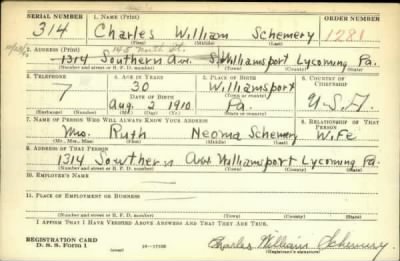 SERIAL NUMBER 1. NAME (Print) ORDER NUMBER
314 Charles William Schemery 1281
(First) (Middle) (Last)
2. ADDRESS (Print) 145 North St.
1314 Southern Ave. S. Williamsport Lycoming Pa.
(Number and street or R. F. D. number) (Town) (County) (State)
3. TELEPHONE 4. AGE IN YEARS 5. PLACE OF BIRTH 6. COUNTRY OF CITIZENSHIP
30 Williamsport
DATE OF BIRTH (Town or county)
Aug. 2 1910 Pa. U.S.A.
(Exchange) (Number) (Mo.) (Day) (Yr.) (State or country)
7. NAME OF PERSON WHO WILL ALWAYS KNOW YOUR ADDRESS 8. RELATIONSHIP OF THAT PERSON
Mrs. Ruth Neoma Schemery Wife
(Mr., Mrs., Miss) (First) (Middle) (Last)
9. ADDRESS OF THAT PERSON
1314 Southern Ave Williamsport Lycoming Pa.
(Number and street or R. F. D. number) (Town) (County) (State)
10. EMPLOYER'S NAME
11. PLACE OF EMPLOYMENT OR BUSINESS
(Number and street or R. F. D. number) (Town) (County) (State)
I AFFIRM THAT I HAVE VERIFIED ABOVE ANSWERS AND THAT THEY ARE TRUE.
REGISTRATION CARD
D. S. S. Form 1 Charles William Schemery
(Registrant's signature)